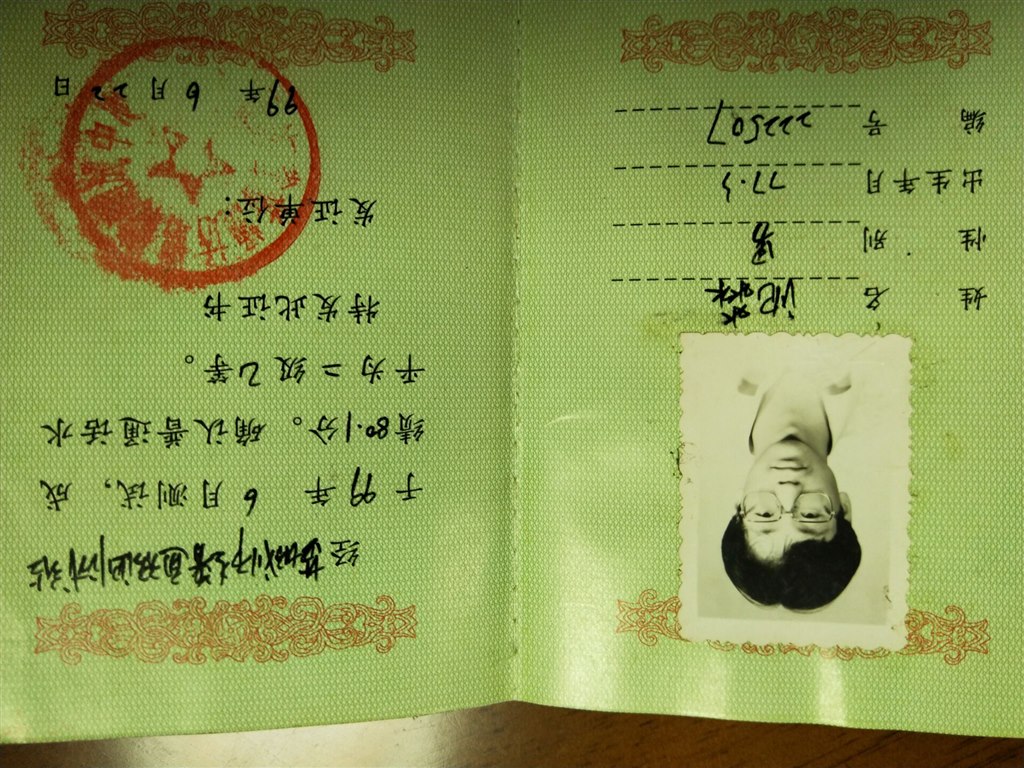 姓 名
性 别 男
出生年月 77.
编 号 222507
经 普通话测试站
于 99 年 6 月测试，成
绩80.1分。确认普通话水
平为二级乙等。
特发此证书
发证单位：
99 年 6 月 22 日